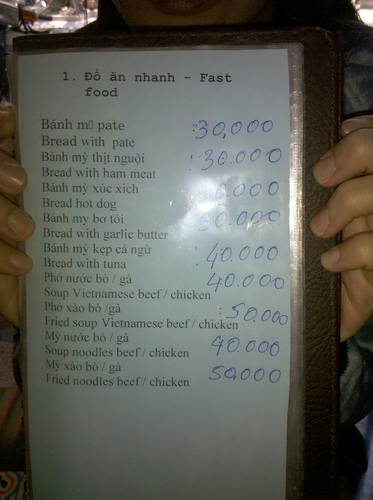 1. Đồ ăn nhanh - Fast
food
Bánh m pate :30,000
Bread with pate
Bánh mỳ thịt nguội :30.000
Bread with ham meat
Bánh mỳ xúc xich 000
Bread hot dog
Bánh my bơ tỏi 000
Bread with garlic butter
Bánh mỳ kẹp cá ngừ : 40.000
Bread with tuna
Phở nước bò / gà 40.000
Soup Vietnamese beef / chicken
Phở xào bò /gà :50.000
Fried soup Vietnamese beef / chicken
Mỳ nước bò / gà 40.000
Soup noodles beef / chicken
Mỳ xào bò / gà 50.000
Fried noodles beef / chicken